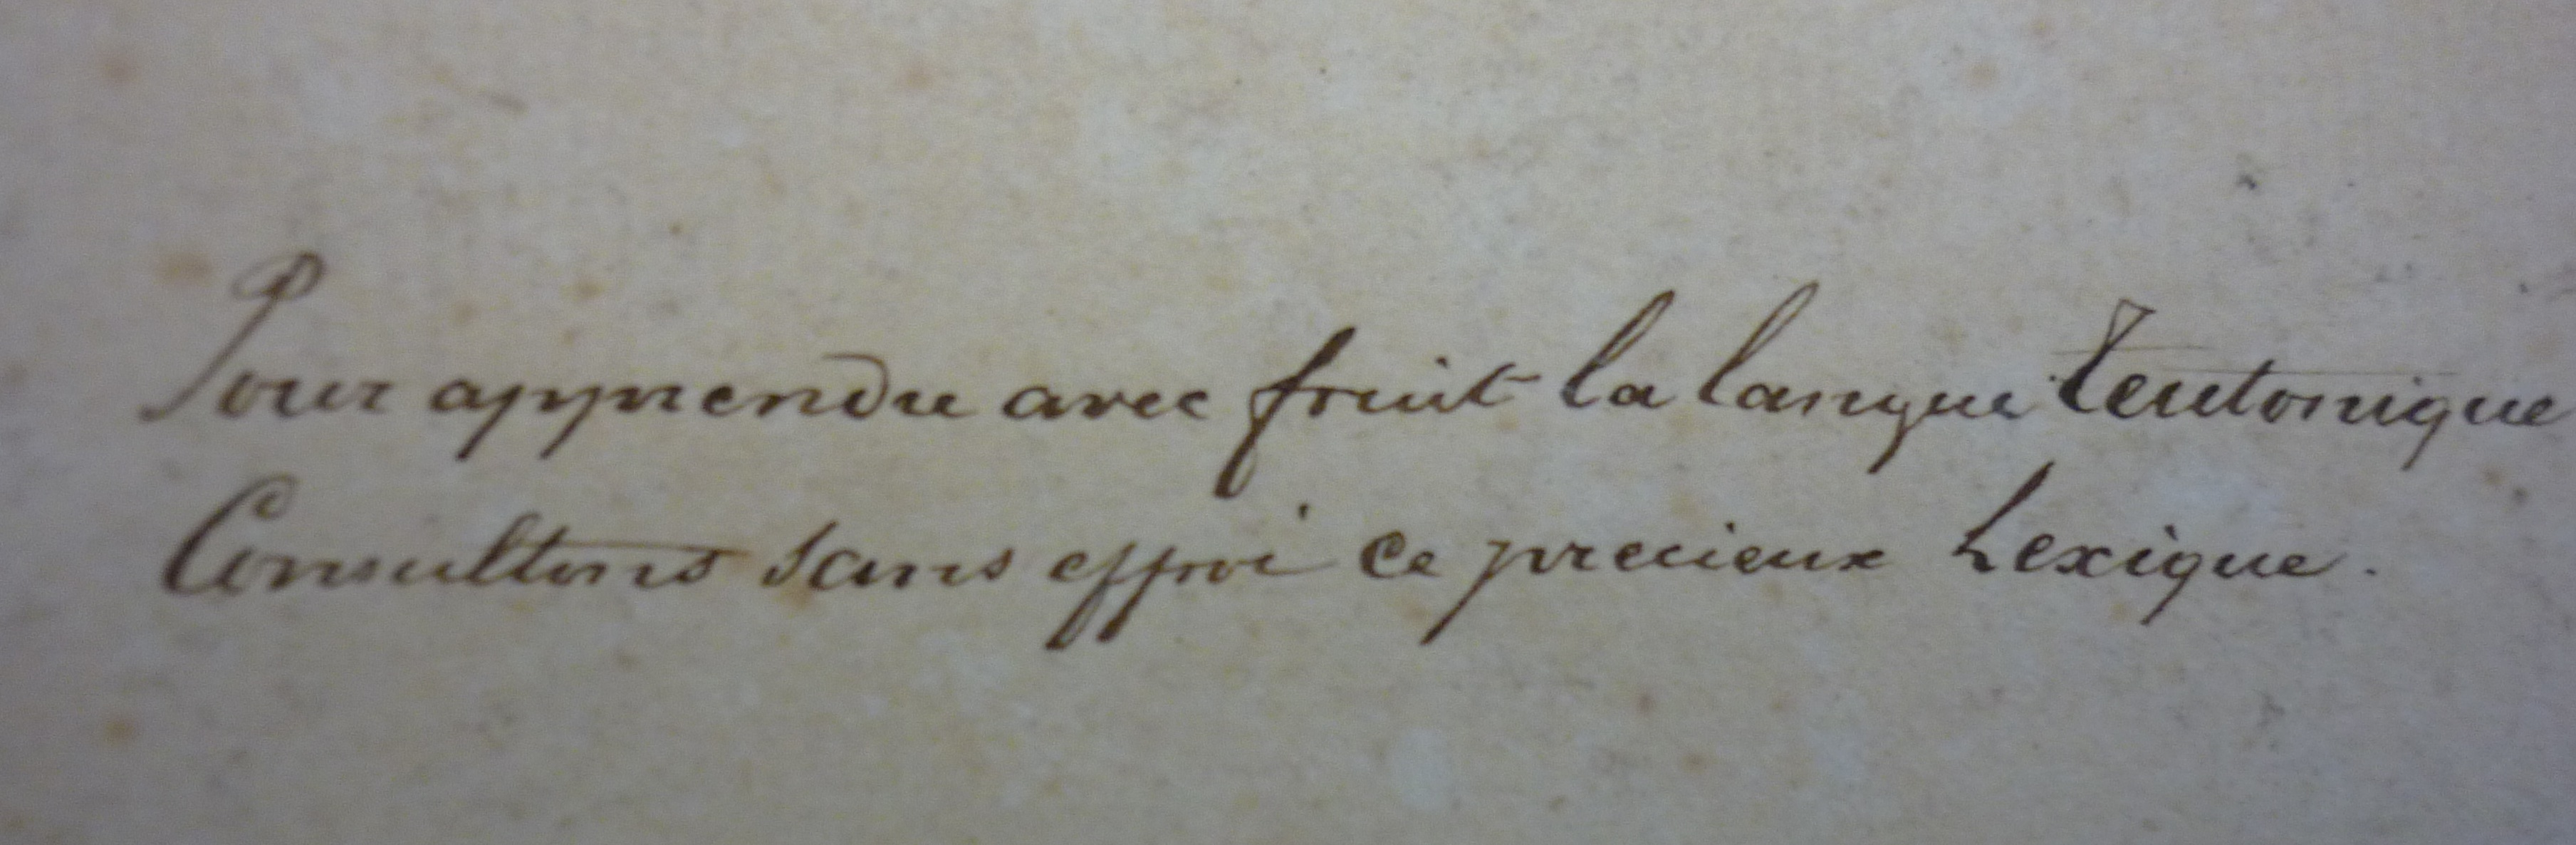 Pour apprendre avec fruit la langue Teutonique
Consultons sans effroi ce precieux Lexique.